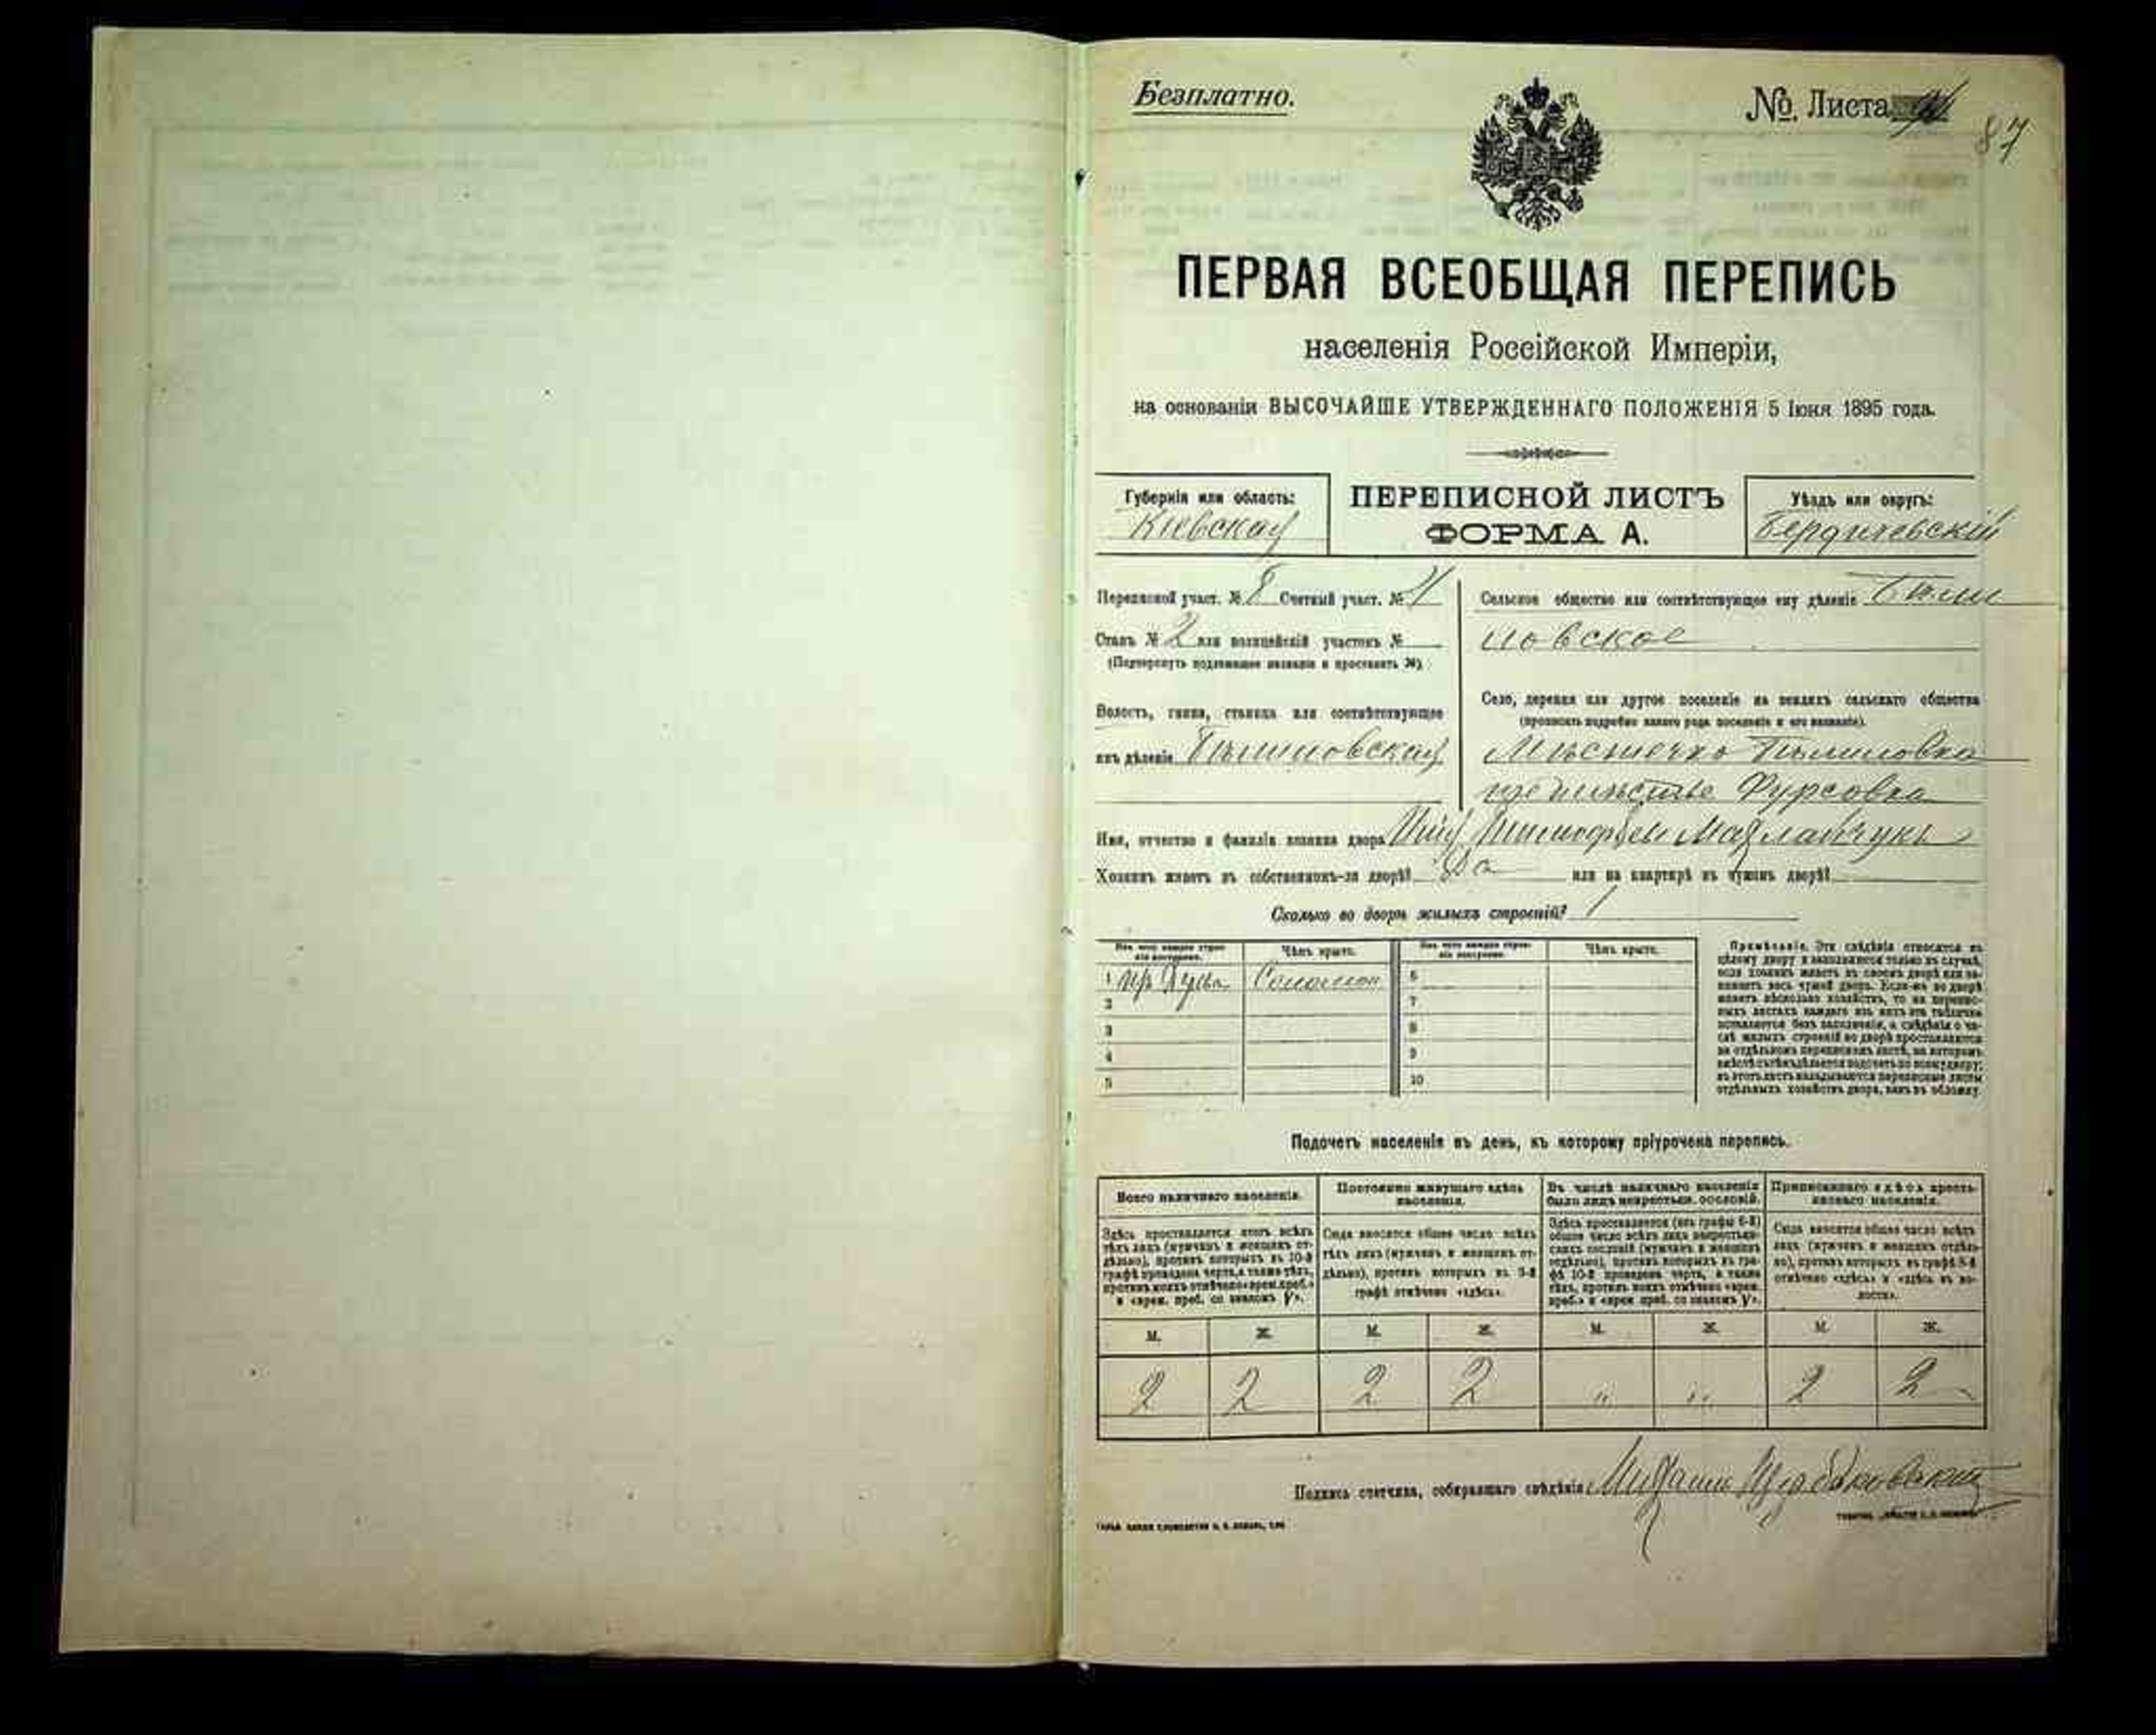 Безплатно.
№. Листа
87
ПЕРВАЯ ВСЕОБЩАЯ ПЕРЕПИСЬ
населенія Россійской Имперіи,
на основаніи ВЫСОЧАЙШЕ УТВЕРЖДЕННАГО ПОЛОЖЕНІЯ 5 Іюня 1895 года.
Губернія или область:
Кіевская
ПЕРЕПИСНОЙ ЛИСТЪ
ФОРМА А.
Уѣздъ или округъ:
Бердичевскій
Переписной участ. № 8 Счетный участ. № 4
Станъ № 2 или полицейскій участокъ №
(Подчеркнуть подлежащее названіе и проставить №).
Волость, гмина, станица или соотвѣтствующее
имъ дѣленіе
Сельское общество или соотвѣтствующее ему дѣленіе
новское
Село, деревня или другое поселеніе на земляхъ сельскаго общества
(прописать подробно какого рода поселеніе и его названіе).
Мѣстечко
Фурсовка
Имя, отчество и фамилія хозяина двора
Хозяинъ живетъ въ собственномъ-ли дворѣ? Да или на квартирѣ въ чужомъ дворѣ?
Сколько во дворѣ жилыхъ строеній? 1
Изъ чего каждое строеніе построено.
Чѣмъ крыто.
Изъ чего каждое строеніе построено.
Чѣмъ крыто.
1 Соломой 6
2 7
3 8
4 9
5 10
Примѣчаніе. Эти свѣдѣнія относятся къ
цѣлому двору и заполняются только въ случаѣ,
если хозяинъ живетъ въ своемъ дворѣ или за-
нимаетъ весь чужой дворъ. Если-же во дворѣ
живетъ нѣсколько хозяйствъ, то на перепис-
ныхъ листахъ каждаго изъ нихъ эта табличка
оставляется безъ заполненія, а свѣдѣнія о чи-
слѣ жилыхъ строеній во дворѣ проставляются
на отдѣльномъ переписномъ листѣ, на которомъ
вмѣстѣ съ тѣмъ дѣлается подсчетъ по всему двору;
въ этотъ листъ вкладываются переписные листы
отдѣльныхъ хозяйствъ двора, какъ въ обложку.
Подсчетъ населенія въ день, къ которому пріурочена перепись.
Всего наличнаго населенія.
Здѣсь проставляется итогъ всѣхъ
тѣхъ лицъ (мужчинъ и женщинъ от-
дѣльно), противъ которыхъ въ 10-й
графѣ проведена черта, а также тѣхъ,
противъ коихъ отмѣчено «врем. преб.»
и «врем. преб. со знакомъ V».
Постоянно живущаго здѣсь
населенія.
Сюда вносится общее число всѣхъ
тѣхъ лицъ (мужчинъ и женщинъ от-
дѣльно), противъ которыхъ въ 9-й
графѣ отмѣчено «здѣсь».
Въ числѣ наличнаго населенія
было лицъ некрестьян. сословій.
Здѣсь проставляется (изъ графы 6-й)
общее число всѣхъ лицъ некрестьян-
скихъ сословій (мужчинъ и женщинъ
отдѣльно), противъ которыхъ въ гра-
фѣ 10-й проведена черта, а также
тѣхъ, противъ коихъ отмѣчено «врем.
преб.» и «врем. преб. со знакомъ V».
Приписаннаго здѣсь кресть-
янскаго населенія.
Сюда вносится общее число всѣхъ
лицъ (мужчинъ и женщинъ отдѣль-
но), противъ которыхъ въ графѣ 8-й
отмѣчено «здѣсь» и «здѣсь въ во-
лости».
М. Ж. М. Ж. М. Ж. М. Ж.
2 2 2 2 " " 2 2
Подпись счетчика, собиравшаго свѣдѣнія Михаилъ